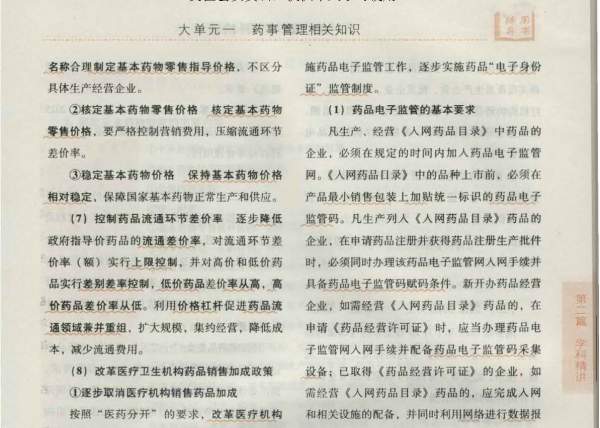 大单元一 药事管理相关知识
名称合理制定基本药物零售指导价格，不区分
具体生产经营企业。
②核定基本药物零售价格 核定基本药物
零售价格，要严格控制营销费用，压缩流通环节
差价率。
③稳定基本药物价格 保持基本药物价格
相对稳定，保障国家基本药物正常生产和供应。
（7）控制药品流通环节差价率 逐步降低
政府指导价药品的流通差价率，对流通环节差
价率（额）实行上限控制，并对高价和低价药
品实行差别差率控制，低价药品差价率从高，高
价药品差价率从低。利用价格杠杆促进药品流
通领域兼并重组，扩大规模，集约经营，降低成
本，减少流通费用。
（8）改革医疗卫生机构药品销售加成政策
①逐步取消医疗机构销售药品加成
按照“医药分开”的要求，改革医疗机构
施药品电子监管工作，逐步实施药品“电子身份
证”监管制度。
（1）药品电子监管的基本要求
凡生产、经营《入网药品目录》中药品的
企业，必须在规定的时间内加入药品电子监管
网。《入网药品目录》中的品种上市前，必须在
产品最小销售包装上加贴统一标识的药品电子
监管码。凡生产列入《入网药品目录》药品的
企业，在申请药品注册并获得药品注册生产批件
时，必须同时办理该药品电子监管网入网手续并
具备药品电子监管码赋码条件。新开办药品经营
企业，如需经营《入网药品目录》药品的，在
申请《药品经营许可证》时，应当办理药品电
子监管网入网手续并配备药品电子监管码采集
设备；已取得《药品经营许可证》的企业，如
需经营《入网药品目录》药品的，应完成入网
和相关设施的配备，并同时利用网络进行数据报
第二篇 学科精讲